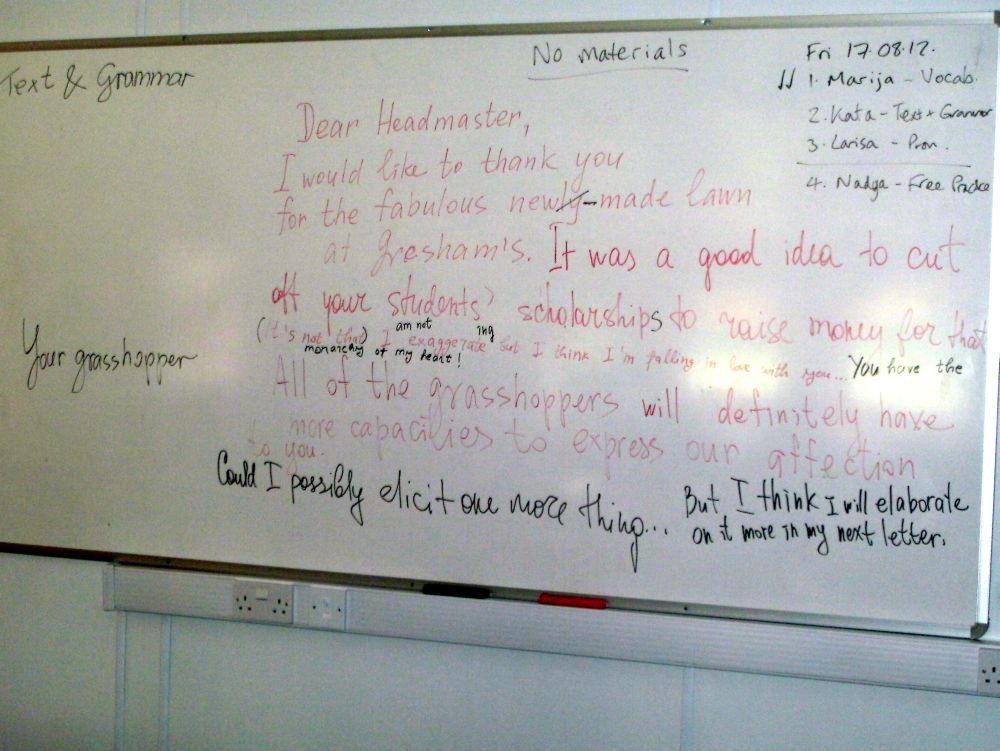 Text & Grammar
No materials
Fri 17.08.12.
1. Marija - Vocab.
2. Kata - Text + Grammar
3. Larisa - Pron.
4. Nadya - Free Practice
Dear Headmaster,
I would like to thank you
for the fabulous newly-made lawn
at Gresham's. It was a good idea to cut
off your students' scholarships to raise money for that
(it's not that) I am not exaggerating but I think I'm falling in love with you... You have the
monarchy of my heart!
All of the grasshoppers will definitely have
more capacities to express our affection
to you.
Could I possibly elicit one more thing... But I think I will elaborate
on it more in my next letter.
Your grasshopper